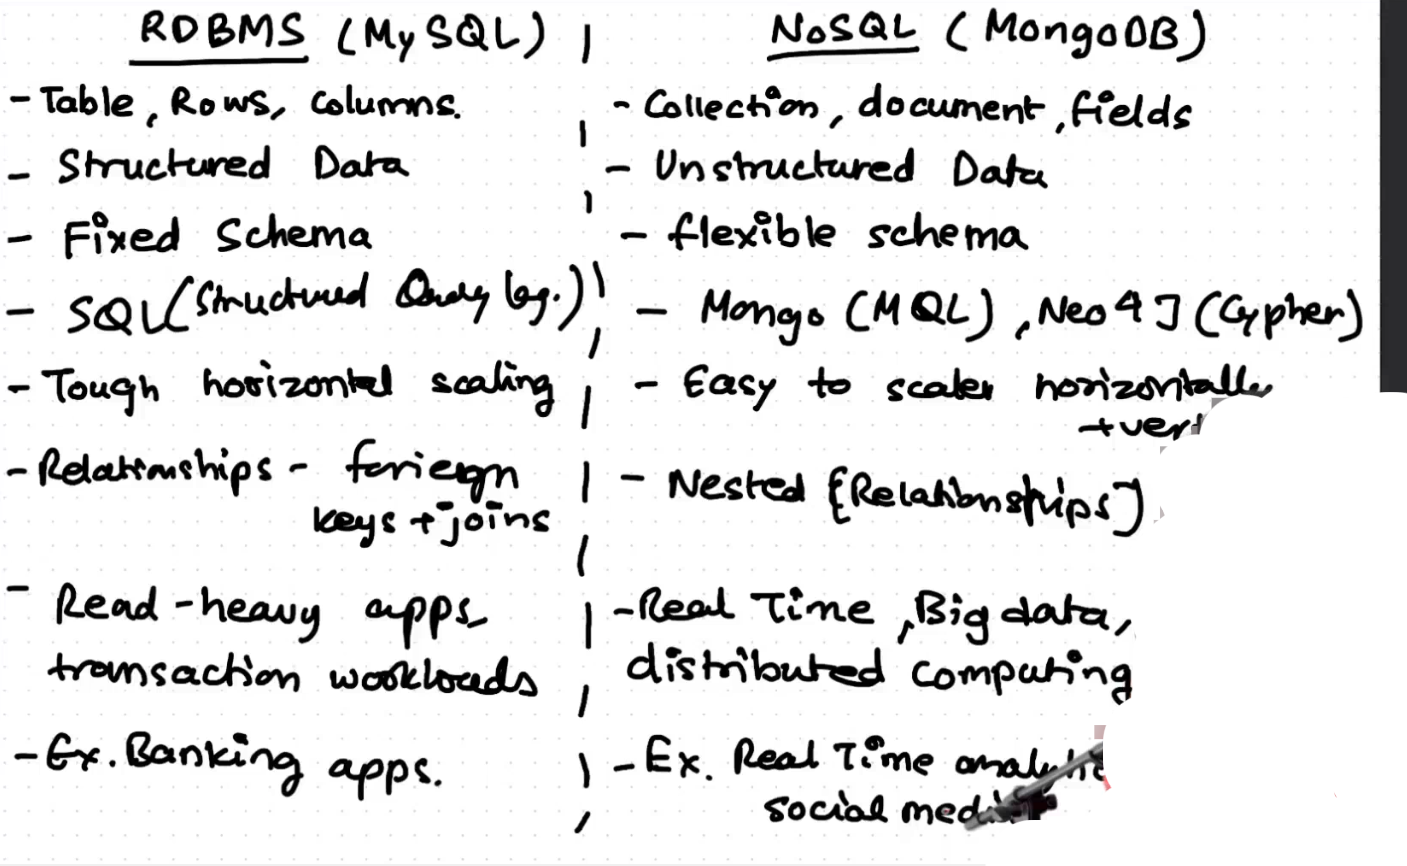 RDBMS (MySQL)
- Table, Rows, Columns.
- Structured Data
- Fixed Schema
- SQL (Structured Query lag.)
- Tough horizontal scaling
- Relationships - foriegn
keys + joins
- Read-heavy apps
transaction workloads
- Ex. Banking apps.
NoSQL (MongoDB)
- Collection, document, fields
- Unstructured Data
- flexible schema
- Mongo (MQL), Neo4J (Cypher)
- Easy to scale horizontally
- Nested {Relationships]
- Real Time, Big data,
distributed computing
- Ex. Real Time
social